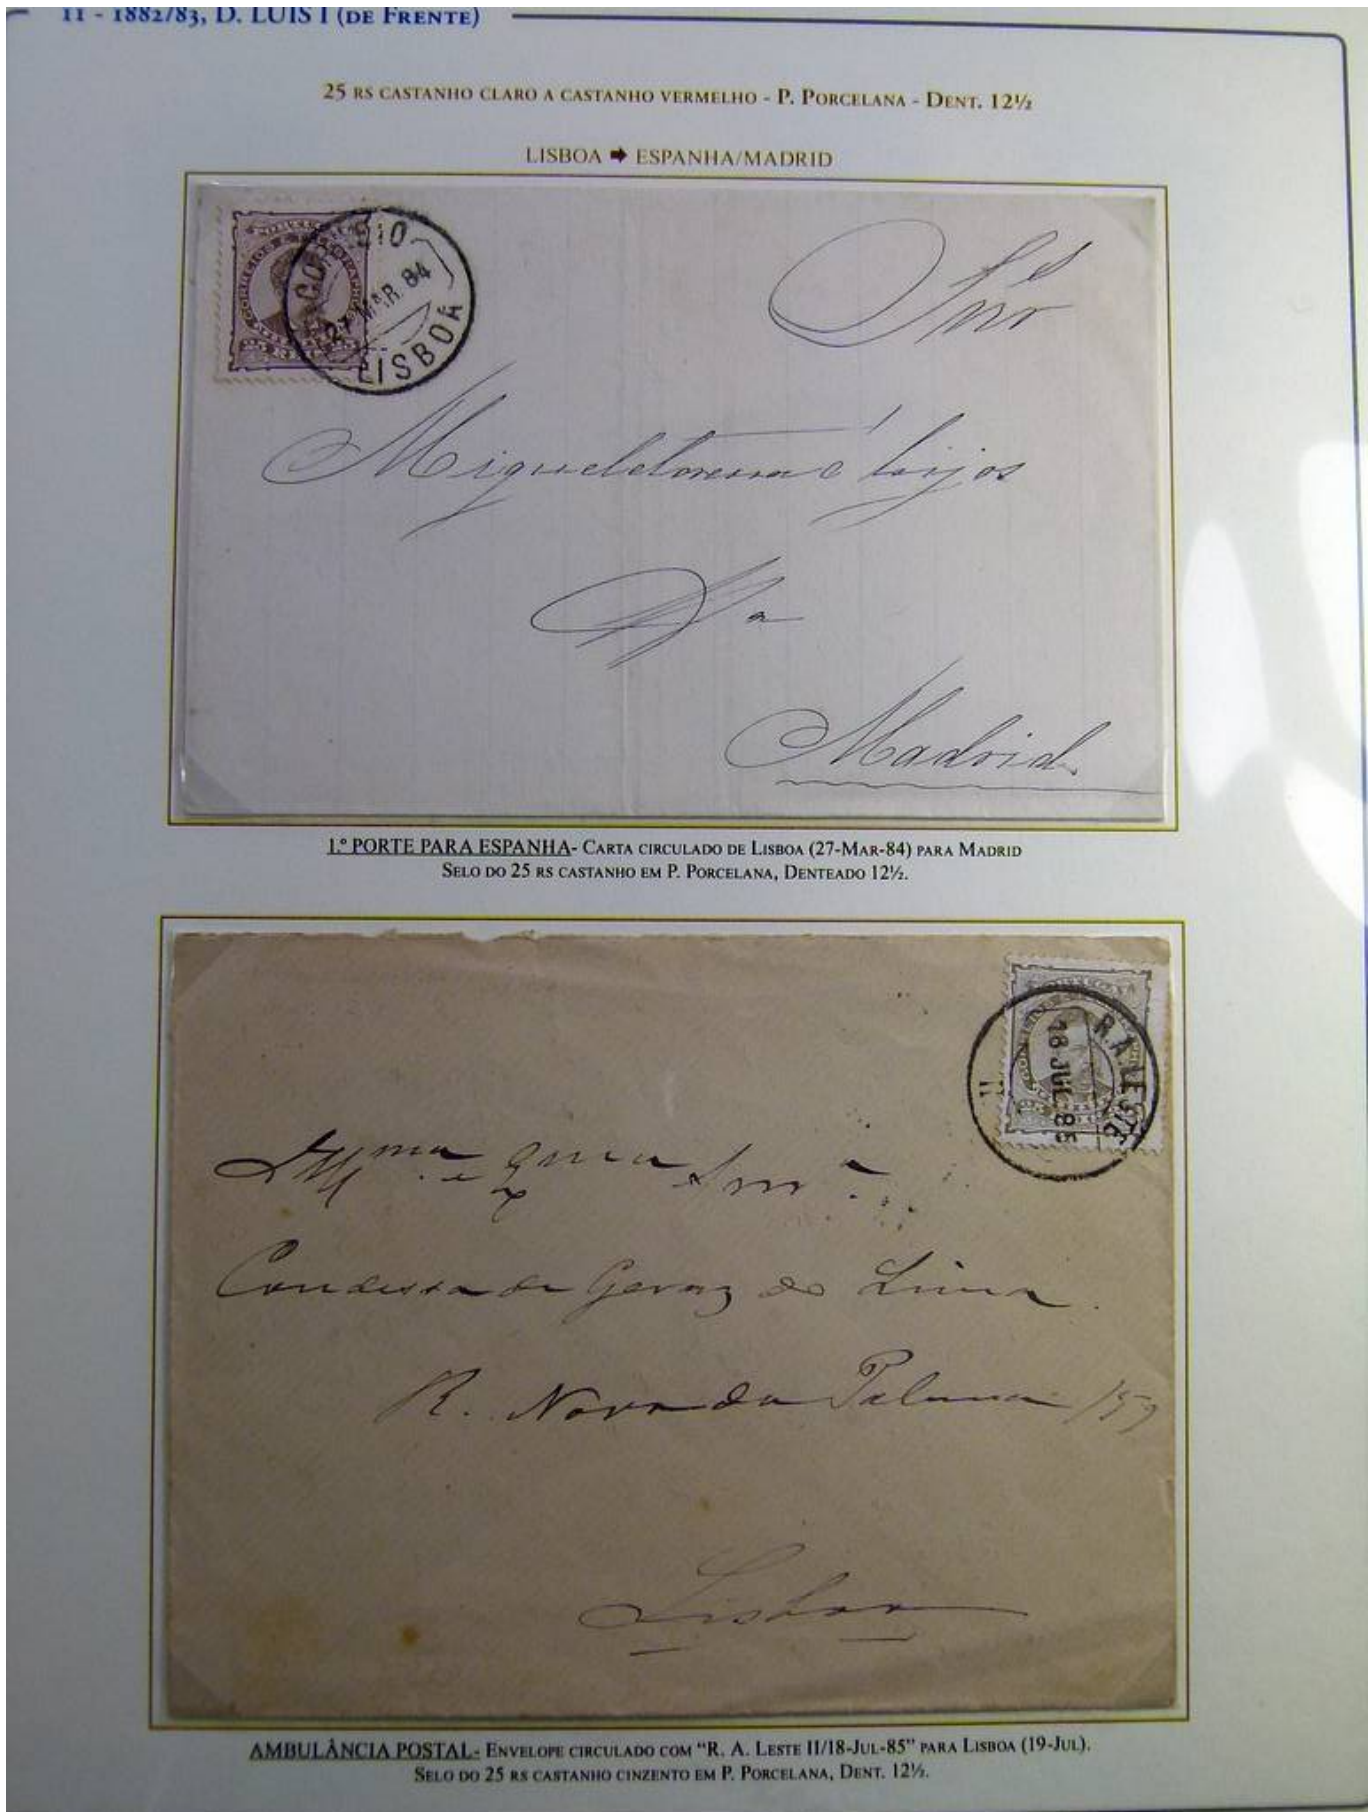 11 - 1882/83, D. LUIS I (DE FRENTE)
25 RS CASTANHO CLARO A CASTANHO VERMELHO - P. PORCELANA - DENT. 12½
LISBOA ➡ ESPANHA/MADRID
CORREIO
27 MAR. 84
LISBOA
25 REIS
Snrs
Miguel e hijos
Madrid
1.º PORTE PARA ESPANHA- CARTA CIRCULADO DE LISBOA (27-MAR-84) PARA MADRID
SELO DO 25 RS CASTANHO EM P. PORCELANA, DENTEADO 12½.
R.A. LESTE
18 JUL 85
II
Illma e Exma Snra
Condessa de Geraz do Lima.
R. Nova da Palma 159
Lisboa
AMBULÂNCIA POSTAL- ENVELOPE CIRCULADO COM "R. A. LESTE II/18-JUL-85" PARA LISBOA (19-JUL).
SELO DO 25 RS CASTANHO CINZENTO EM P. PORCELANA, DENT. 12½.